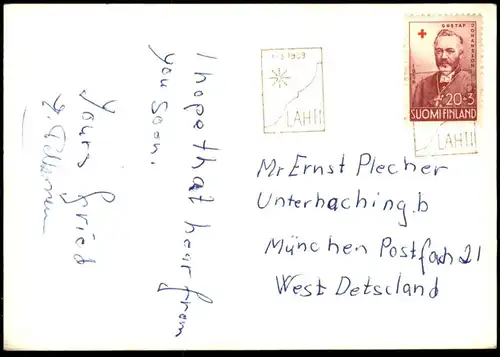 I hope that hear from
you soon.
Yours fried
GUSTAF
JOHANSSON
20+3
SUOMI FINLAND
1959
LAHTI
LAHTI
Mr Ernst Plecher
Unterhaching.b
München Postfach 21
West Detscland